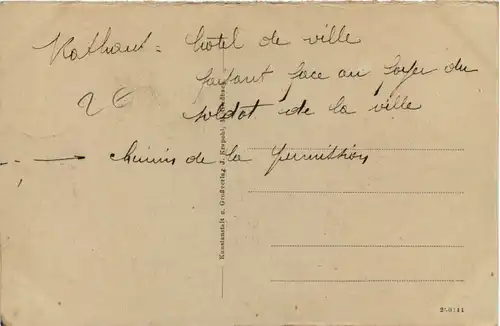 Rathaus = hôtel de ville
faisant face au foyer du
2 €
soldat de la ville
--- → chemin de la permission
Kunstanstalt u. Großverlag J. Krapohl,